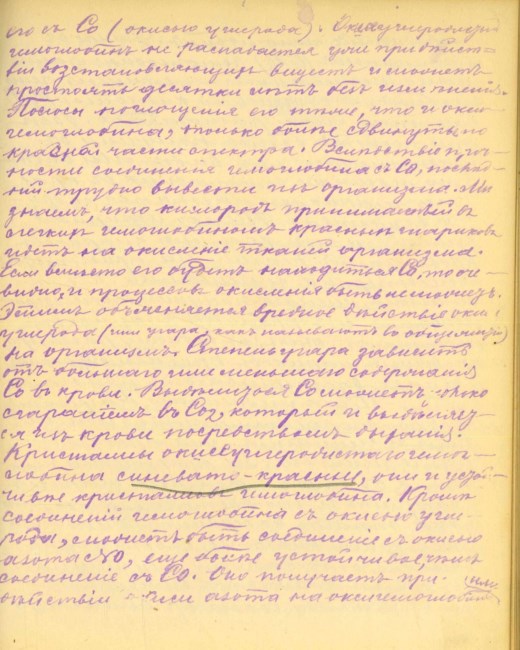 его съ Co (окисью углерода). Окисеуглеродный
гемоглобинъ не распадается уже при дѣйст-
віи возстановляющихъ веществъ и можетъ
простоять десятки лѣтъ безъ измѣненія.
Полосы поглощенія его тѣже, что и окси-
гемоглобина, только болѣе сдвинуты по
красной части спектра. Вслѣдствіе проч-
ности соединенія гемоглобина съ Co, послѣд-
ній трудно вывести изъ организма. Мы
знаемъ, что кислородъ принимаемый въ
легкихъ гемоглобиномъ красныхъ шариковъ
идетъ на окисленіе тканей организма.
Если вмѣсто его будетъ находиться Co, то оче-
видно, и процессовъ окисленія быть не можетъ.
Этимъ объясняется вредное дѣйствіе окиси
углерода (или угара, какъ называютъ въ общежитіи)
на организмъ. Степень угара зависитъ
отъ большаго или меньшаго содержанія
Co въ крови. Выдѣляться Co можетъ только
сгараніемъ въ Co2, который и выдѣляет-
ся изъ крови посредствомъ дыханія.
Кристаллы окисеуглеродистаго гемог-
лобина синевато-красны, они и устой-
чивѣе кристалловъ гемоглобина. Кромѣ
соединеній гемоглобина съ окисью угле-
рода, можетъ быть соединеніе съ окисью
азота NO, еще болѣе устойчивое, чѣмъ
соединеніе съ Co. Оно получается при
дѣйствіи окиси азота на оксигемоглобинъ